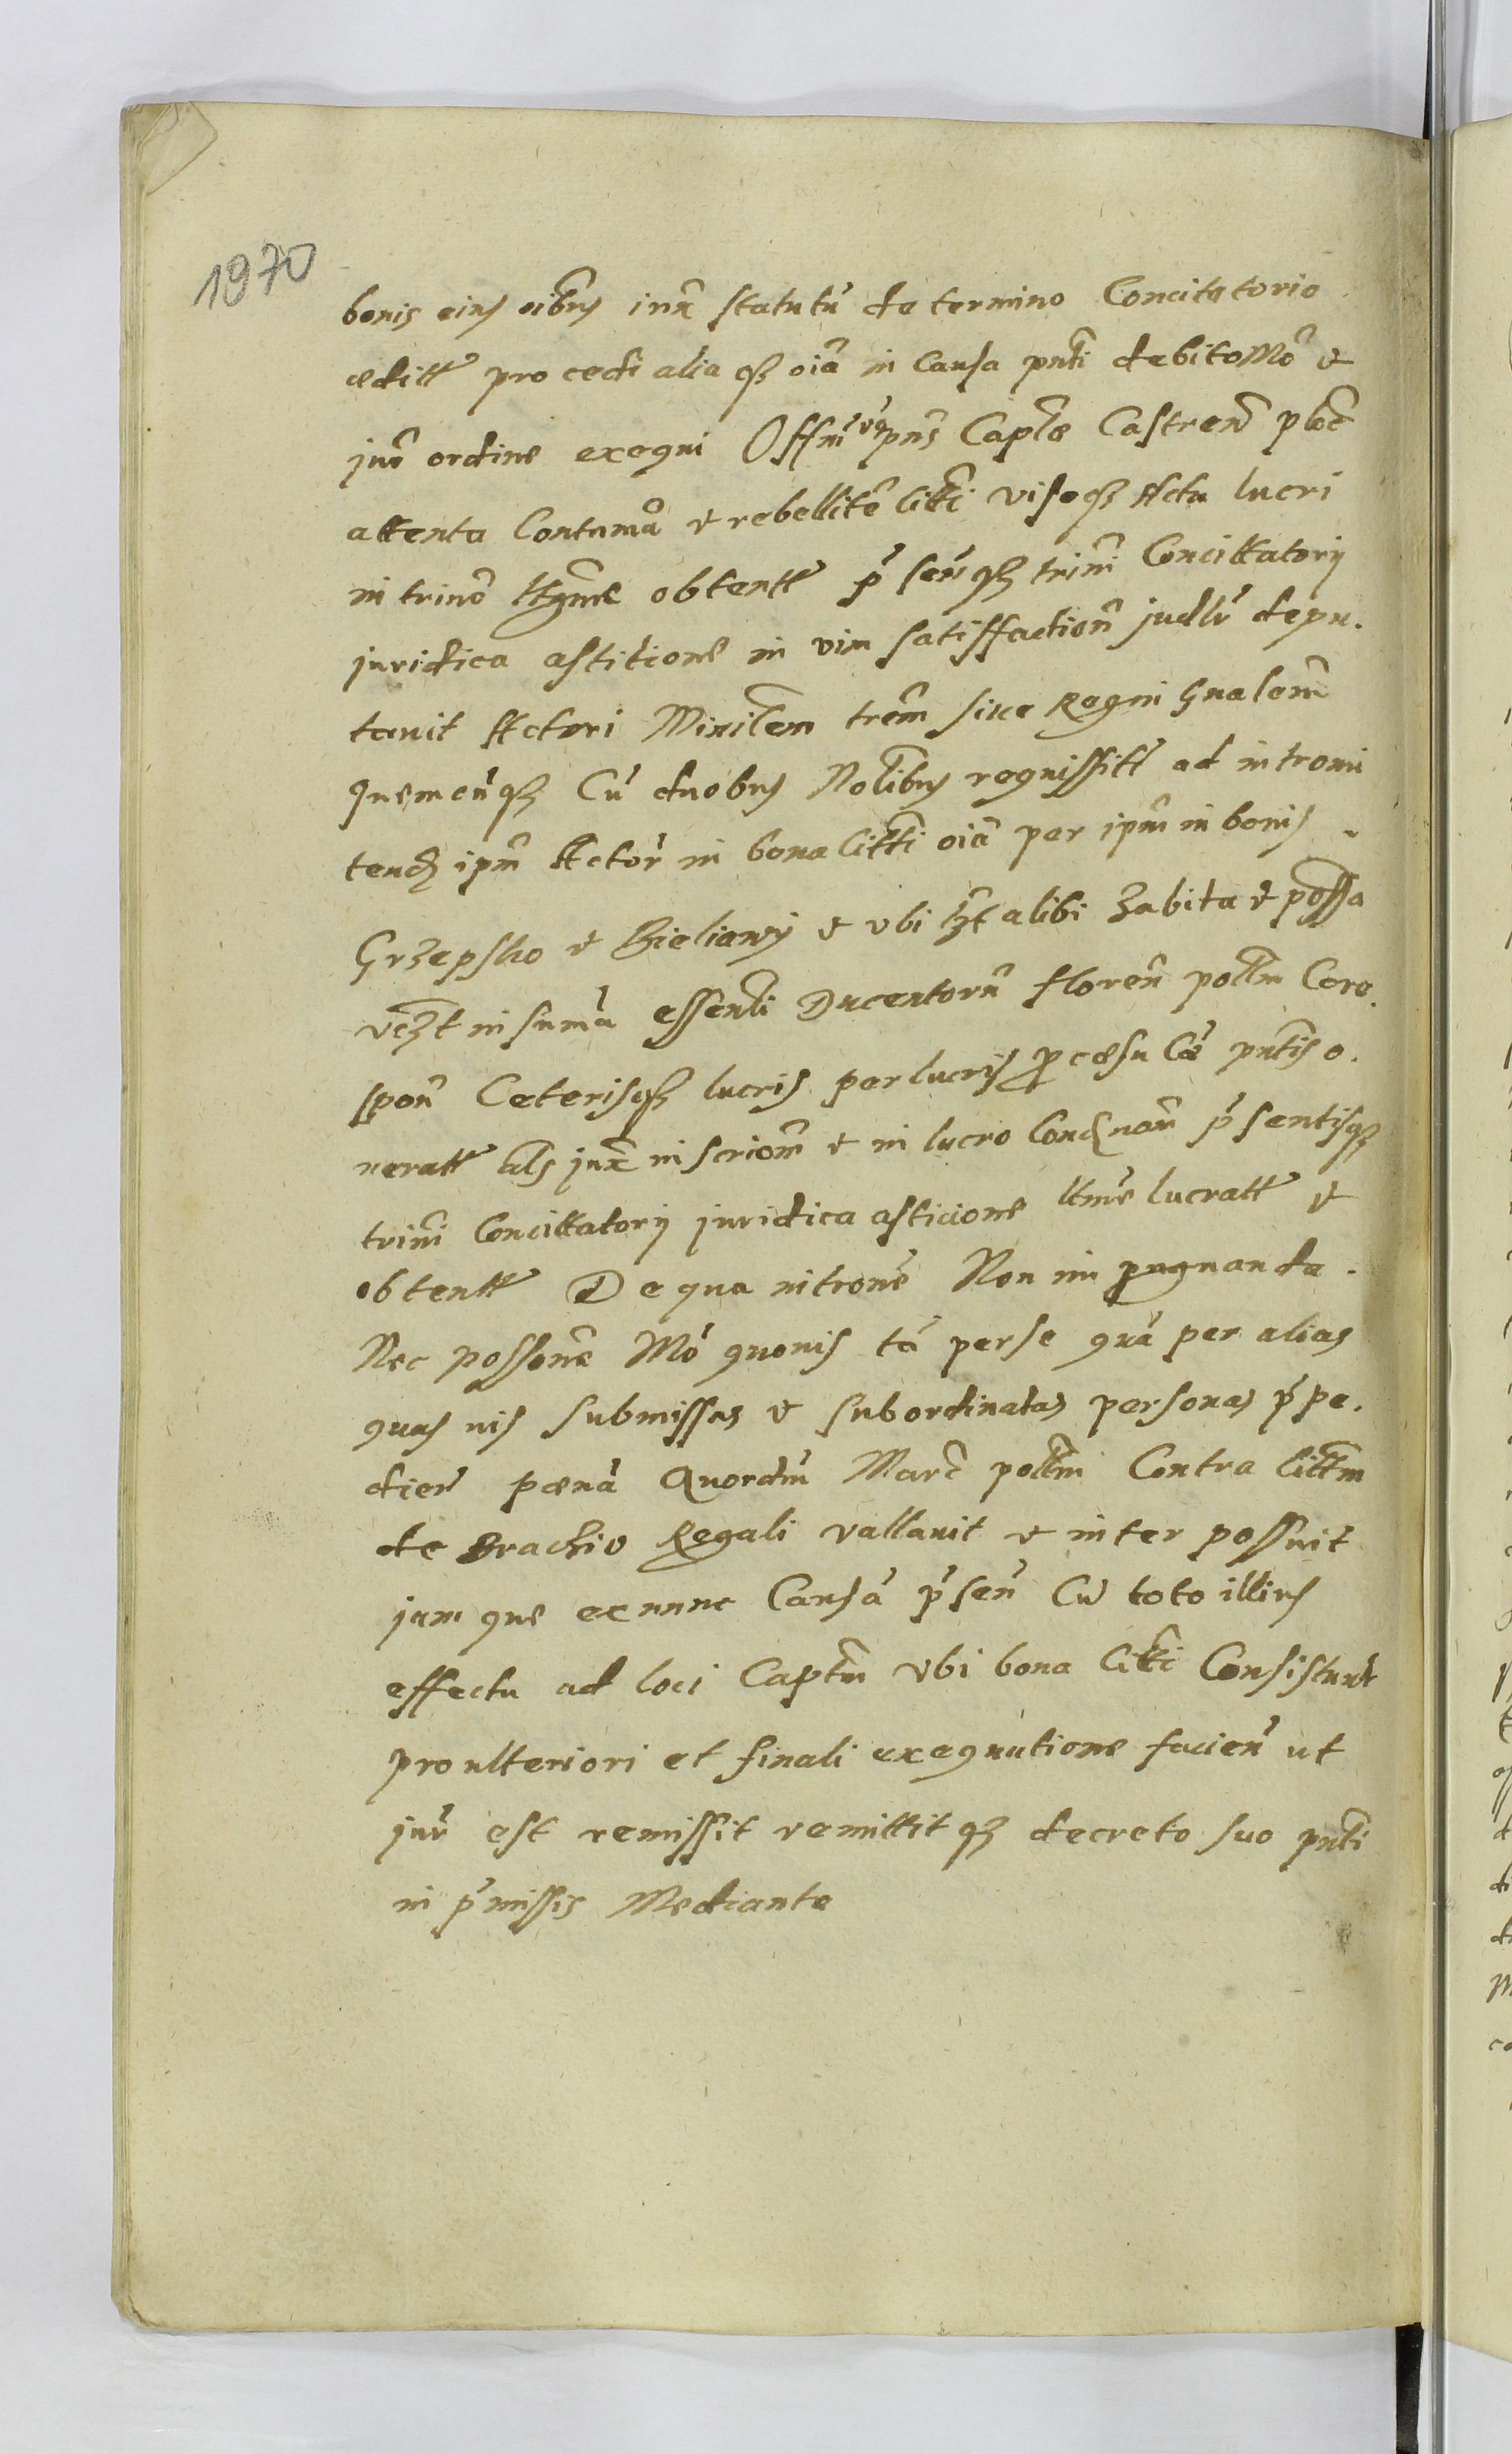 1970
bonis eius oibus iux statutu de termino Concitatorio
æditt procedi aliaqz oia in Causa pnti debito Mo et
jur ordine exequi Offm vo pns Caple Castren ploc
attenta Contuma et rebellite Citti visoqz Actu lucri
in trino ttgme obtentt p senqz trini Concittatorij
juridica astitione in vim satisfaction judlr depu.
tavit Actori Minilem trem sive Regni gnalem
quemcunqz Cu duobus Nolibus requissitt ad intromi
tend ipm Actor in bona Citti oia per ipm in bonis
Grzepsko et Bieliawy et ubi lzt alibi habita et possa
vczt in suma essenti Ducentoru floren poltm Coro.
spon Ceterisqz lucris per lucris pcæsu Cæ pntis o.
neratt als jux inscriom et in lucro Condnam p sentisqz
trini Concittatorij juridica asticione ltme lucratt et
obtentt De qua nitrone Non impugnanda.
Nec possone Mo quovis ta per se qua per alias
quas vis submissas et subordinatas personas p pe.
dien pæna Quordm Marc poltm Contra Cittm
de Brachio Regali vallavit et inter possuit
jam que ex nunc Causa p sen Cu toto illius
effectu ad loci Captm ubi bona Citti Consistunt
pro ulteriori et finali exequutione facien ut
jur est remissit remittitqz decreto suo pnti
in p missis Mediante